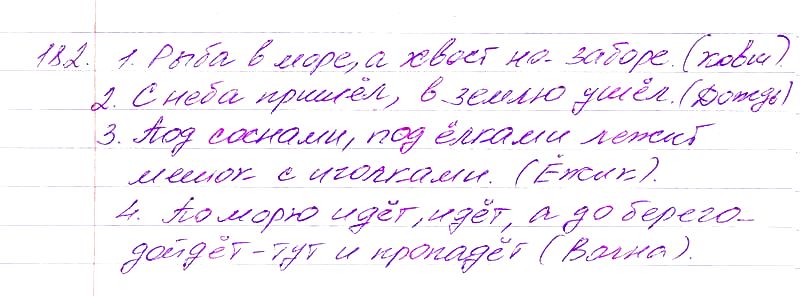 182. 1. Рыба в море, а хвост на заборе. (ковш).
2. С неба пришёл, в землю ушёл. (Дождь)
3. Под соснами, под ёлками лежит
мешок с иголками. (Ёжик).
4. По морю идёт, идёт, а до берега
дойдёт - тут и пропадёт (Волна).